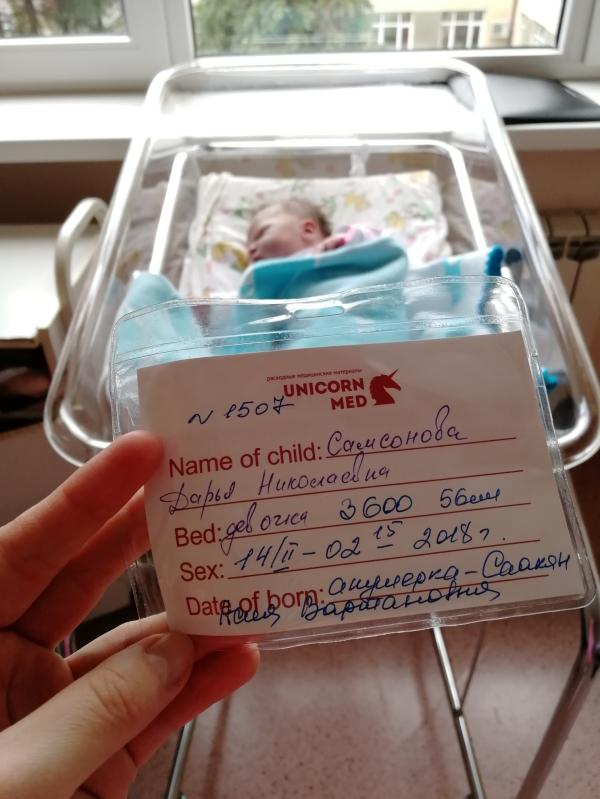 расходные медицинские материалы
UNICORN
MED
N 1507
Name of child: Самсонова
Дарья Николаевна
Bed: девочка 3600 56см
Sex: 14/II - 02 15 2018 г.
Date of born: акушерка - Саакян
Вартановна